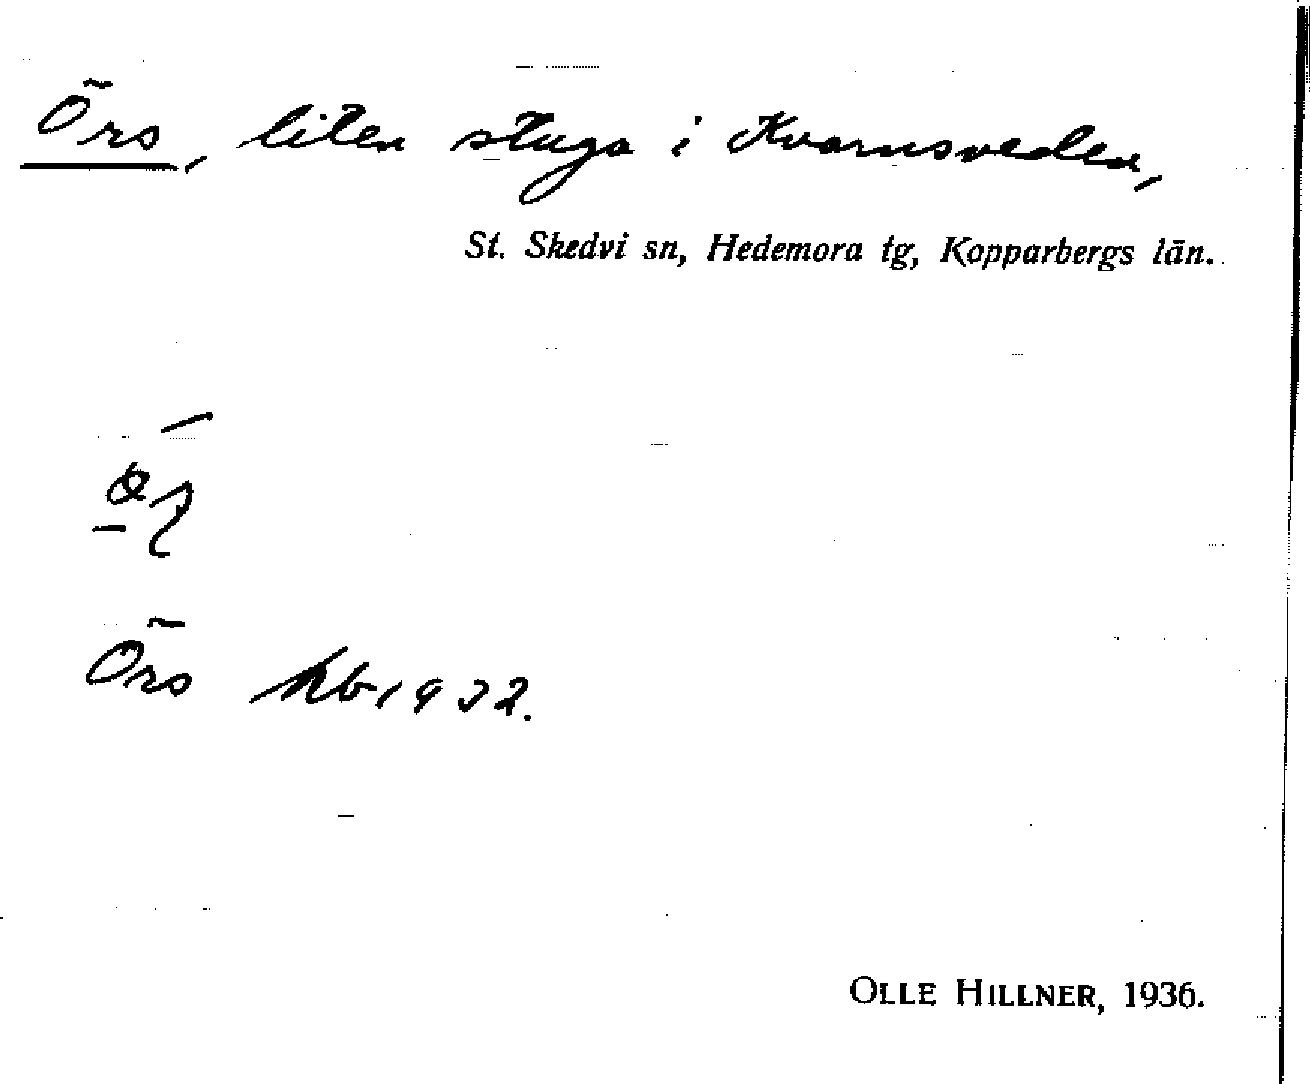 Örs, liten stuga i Kvarnsveden,
St. Skedvi sn, Hedemora tg, Kopparbergs län.
Örs hb 1932.
OLLE HILLNER, 1936.